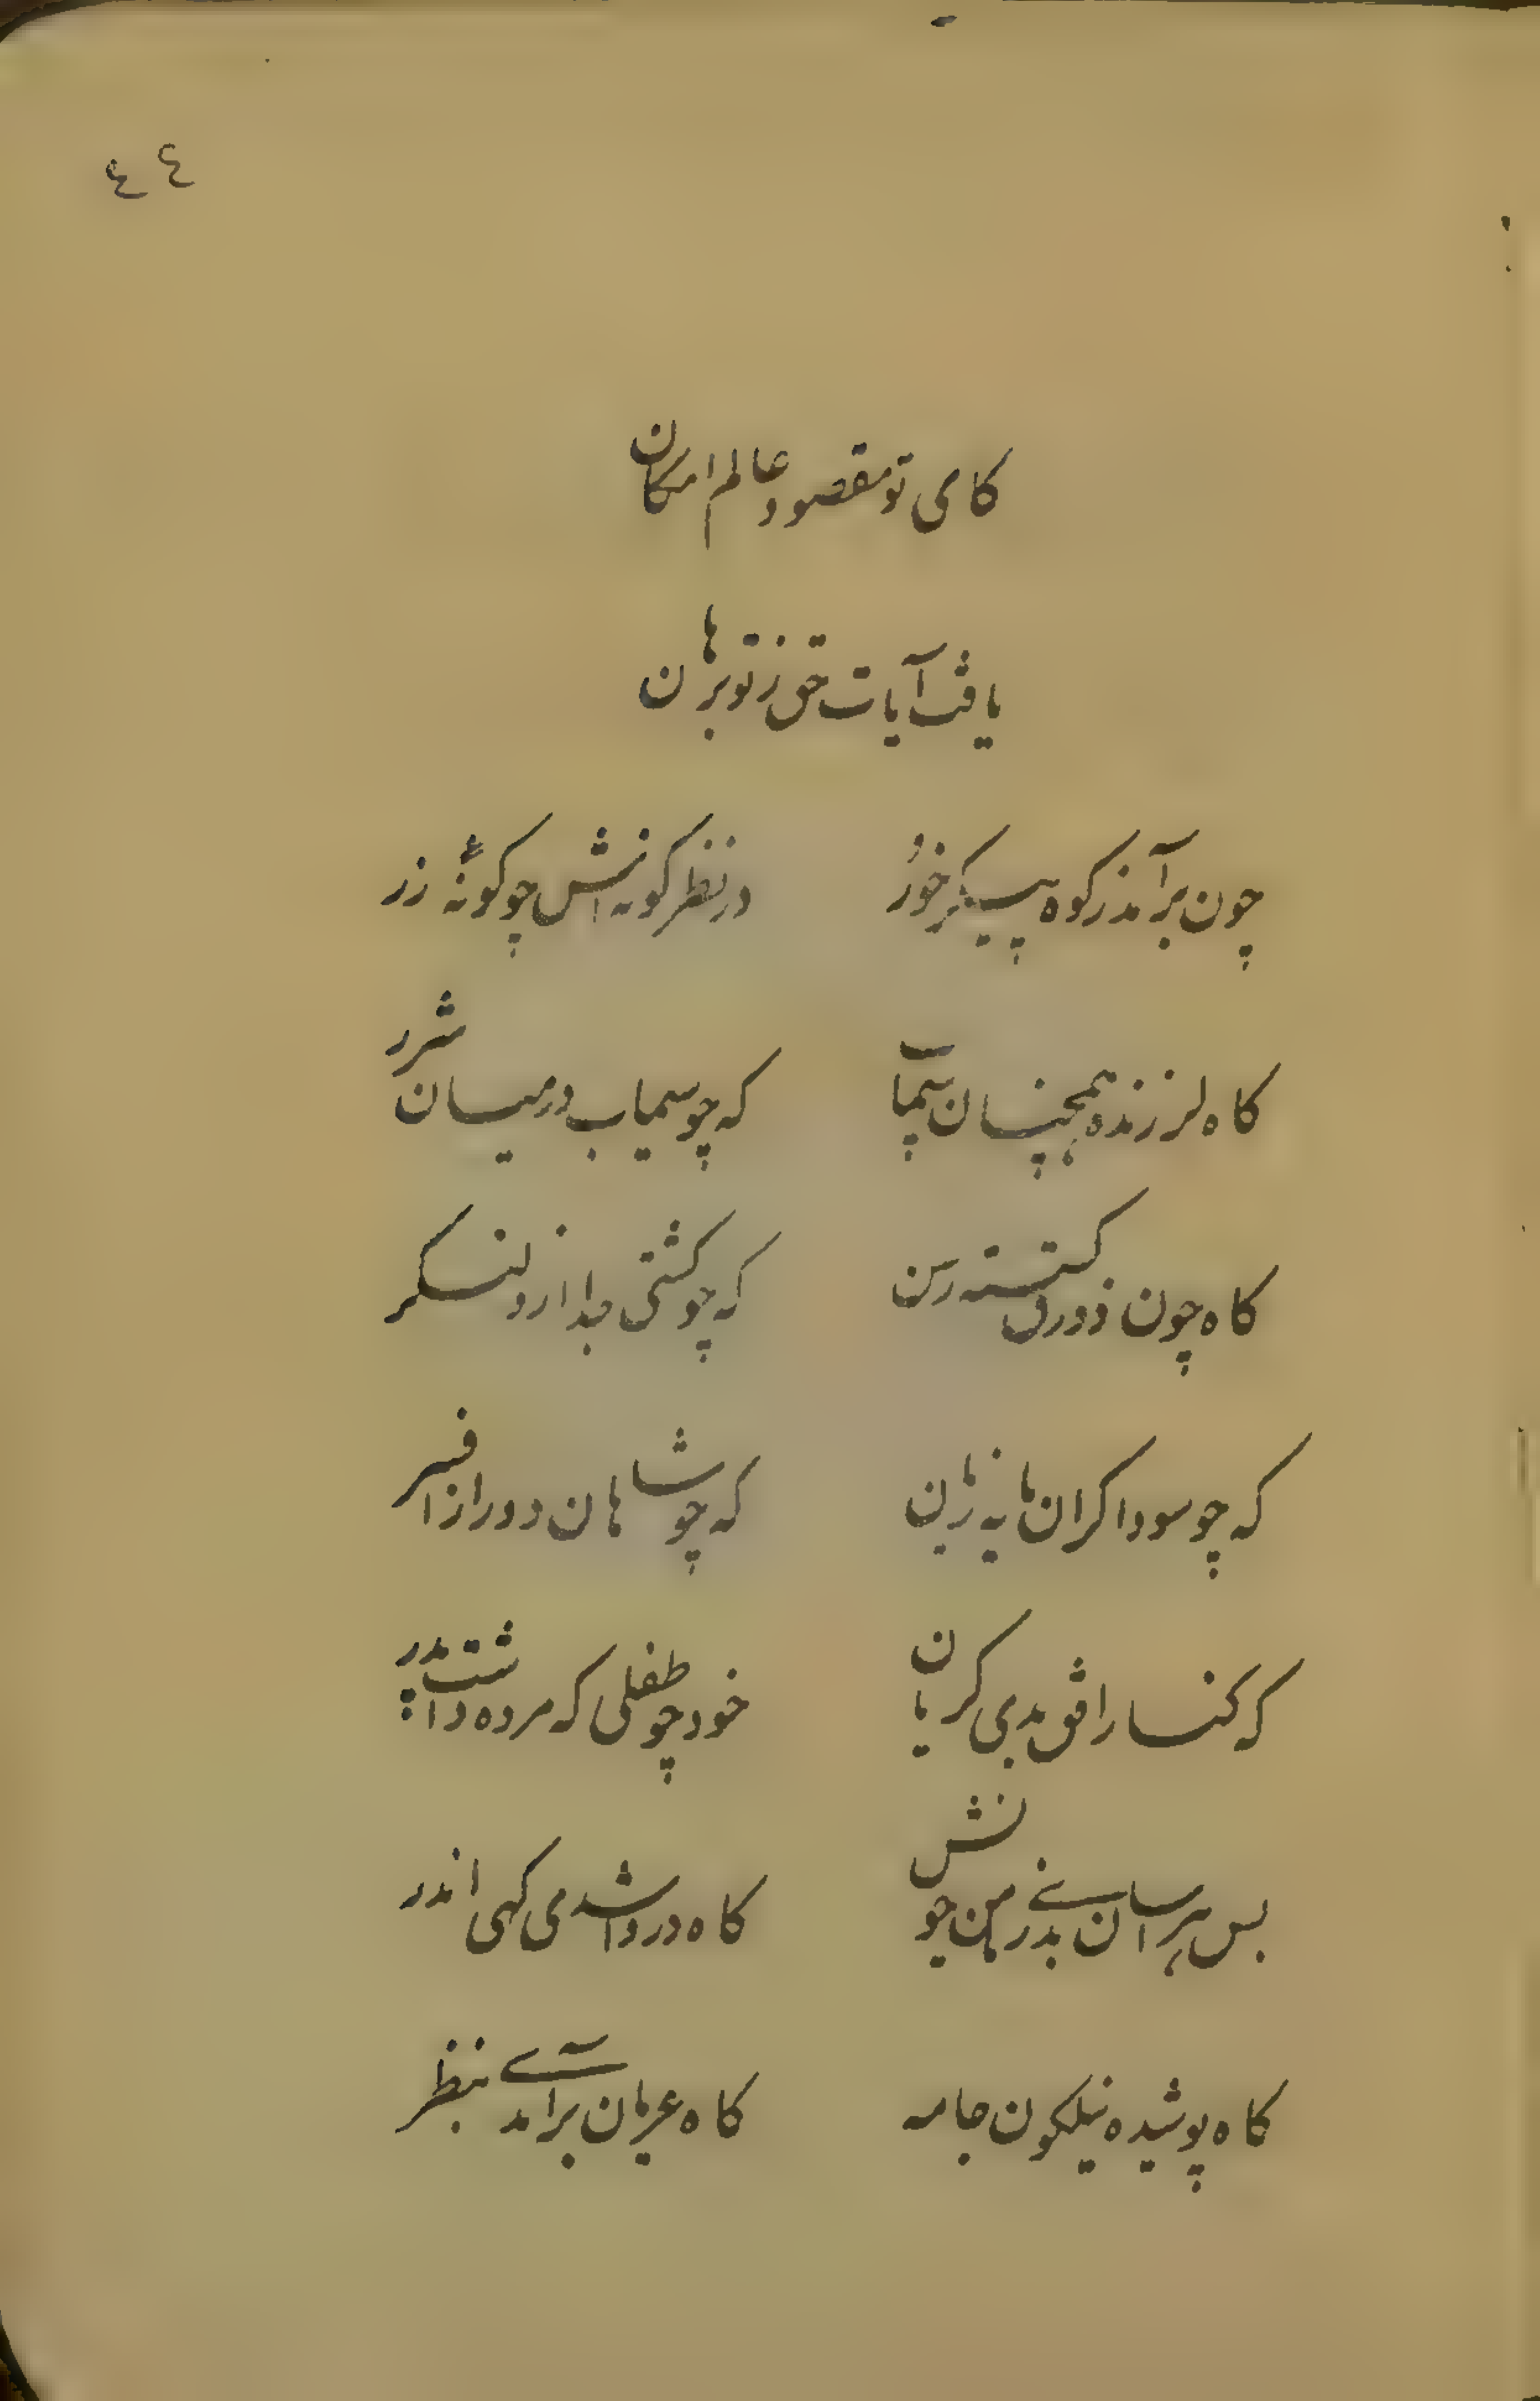 ٤٤
کای تو مقصود عالم امکان
یافت آیات حق ز تو برهان
چون برآمد ز کوه پیکر خور در نظر کونه اش چو کونهٔ زر
کاه لرزنده همچنان سیماب که چو سیماب در میان شرر
کاه چون زورق کسسته رسن که چو کشتی جدا ازو لنکر
که چو سوداکران مایه زیان که چو شاهان دور از افسر
که کنار افق بدی کریان خود چو طفلی که مرده داشت پدر
بس هراسان بدنی ز من چو کاه در وا شدی کهی اندر
کاه پوشیده نیلکون جامه کاه عریان برآمدے بنظر